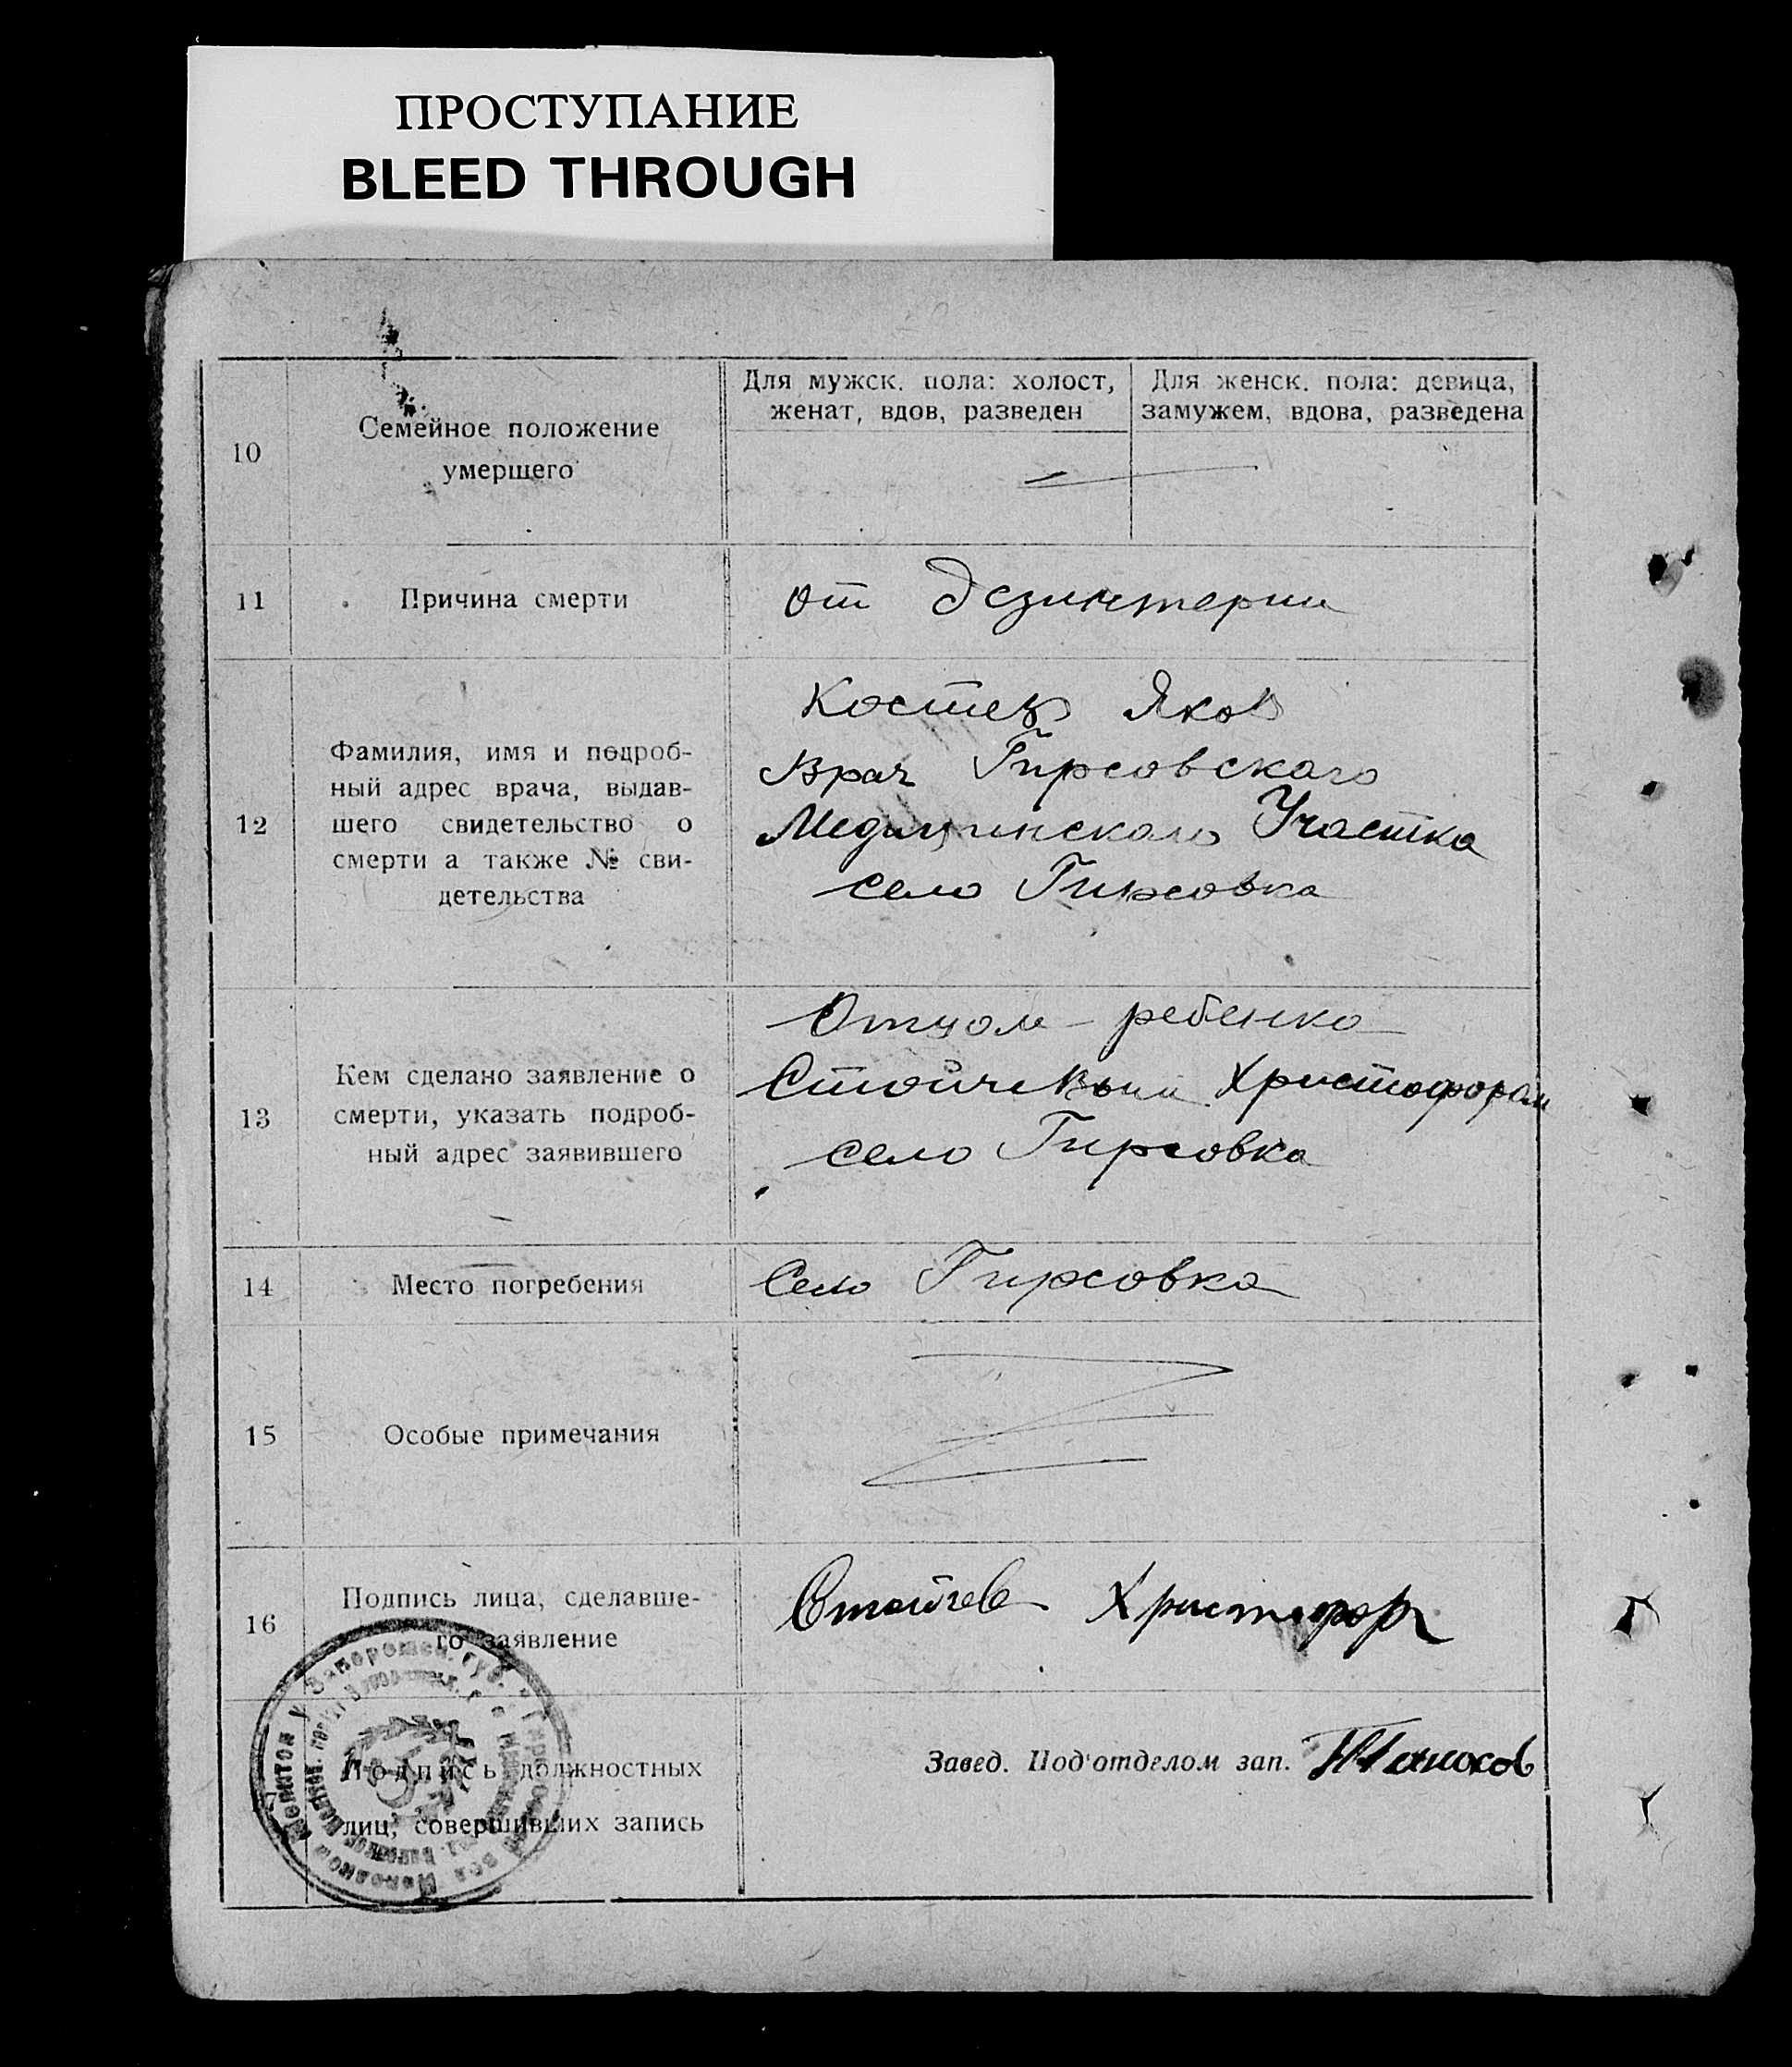 ПРОСТУПАНИЕ
BLEED THROUGH
10
Семейное положение
умершего
Для мужск. пола: холост,
женат, вдов, разведен
Для женск. пола: девица,
замужем, вдова, разведена
11
Причина смерти
от дезинтерии
12
Фамилия, имя и подроб-
ный адрес врача, выдав-
шего свидетельство о
смерти а также № сви-
детельства
Яков
Врач Гирсовскаго
Медицинскаго Участка
село Гирсовка
13
Кем сделано заявление о
смерти, указать подроб-
ный адрес заявившего
Отцом - ребенка
Стойчевым Христофором
село Гирсовка
14
Место погребения
Село Гирсовка
15
Особые примечания
16
Подпись лица, сделавше-
го заявление
Стойчев Христофор
Подпись должностных
лиц, совершивших запись
Завед. Под'отделом зап.